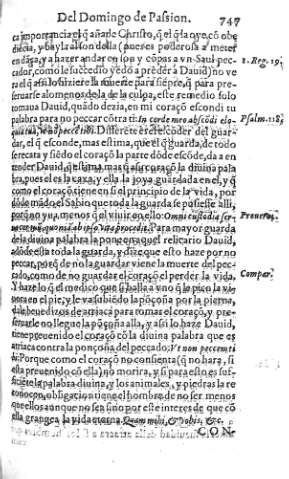 Del Domingo de Passion. 747
ca importancia el q̃ añade Christo, q̃ el q̃ la oye, cõ obe
diecia, y halla al son della (pues es poderosa a meter
en dãça, y a hazer andar en son y cõpas a vn Saul pec-
cador, como le sucedio yẽdo a prẽder à Dauid) no ve 1. Reg. 19.
ra el q̃ assi lo hiziere la muerte para siẽpre, q̃ para pre-
seruarse alomenos de la de la culpa, este remedio solo
tomaua Dauid, quãdo dezia, en mi coraçõ escondi tu
palabra para no peccar cõtra ti: In corde meo abscõdi elo- Psalm. 118.
quia tua, vt nõ peccẽ tibi. Differente es el escõder del guar-
dar, el q̃ esconde, mas estima, que el q̃ guarda, de todo
se recata y siẽdo el coraçõ la parte dõde escõde, da a en
tender Dauid, q̃ estima mas q̃ a su coraçõ la diuina pala
bra, pues el es la caxa, y ella la joya guardada en el, y q̃
como el coraçõ tiene en si el principio de la vida, por
dõde mãdo el Sabio que toda la guarda se pusiesse alli,
porq̃ no yua menos q̃ el viuir en ello: Omni custodia ser- Prouerb.
Para mayor guarda
de la diuina palabra la pone en aquel relicario Dauid,
adõde esta toda la guarda, y dize que esto hazo por no
peccar, porq̃ de no la guardar viene la muerte del pec-
cado, como de no guardar el coraçõ el perder la vida. Compar.
Y haze lo q̃ el medico que si halla a vno q̃ le pico la viu
ora en el pie, y le va subiẽdo la põçoña por la pierna,
dale beuedizos de atriaca para tomar el coraçõ, y pre-
seruarle no llegue la põçoña alla, y assi lo haze Dauid,
preueniendo el coraçõ cõ la diuina palabra que es
atriaca contra la ponçoña del peccado: Vt non peccem ti
bi: Porque como el coraçõ no consienta (q̃ no hara, si
esta preuenido cõ ella) no morira, y si para esto es suf-
ficiẽte la palabra diuina, y los animales, y piedras la re
conocen, obligacion tiene el hombre de no ser menos
que ellos aunque no sea sino por este interes de que cõ
ella grangea la vida eterna. Quam mihi, & vobis, &c.
CON-